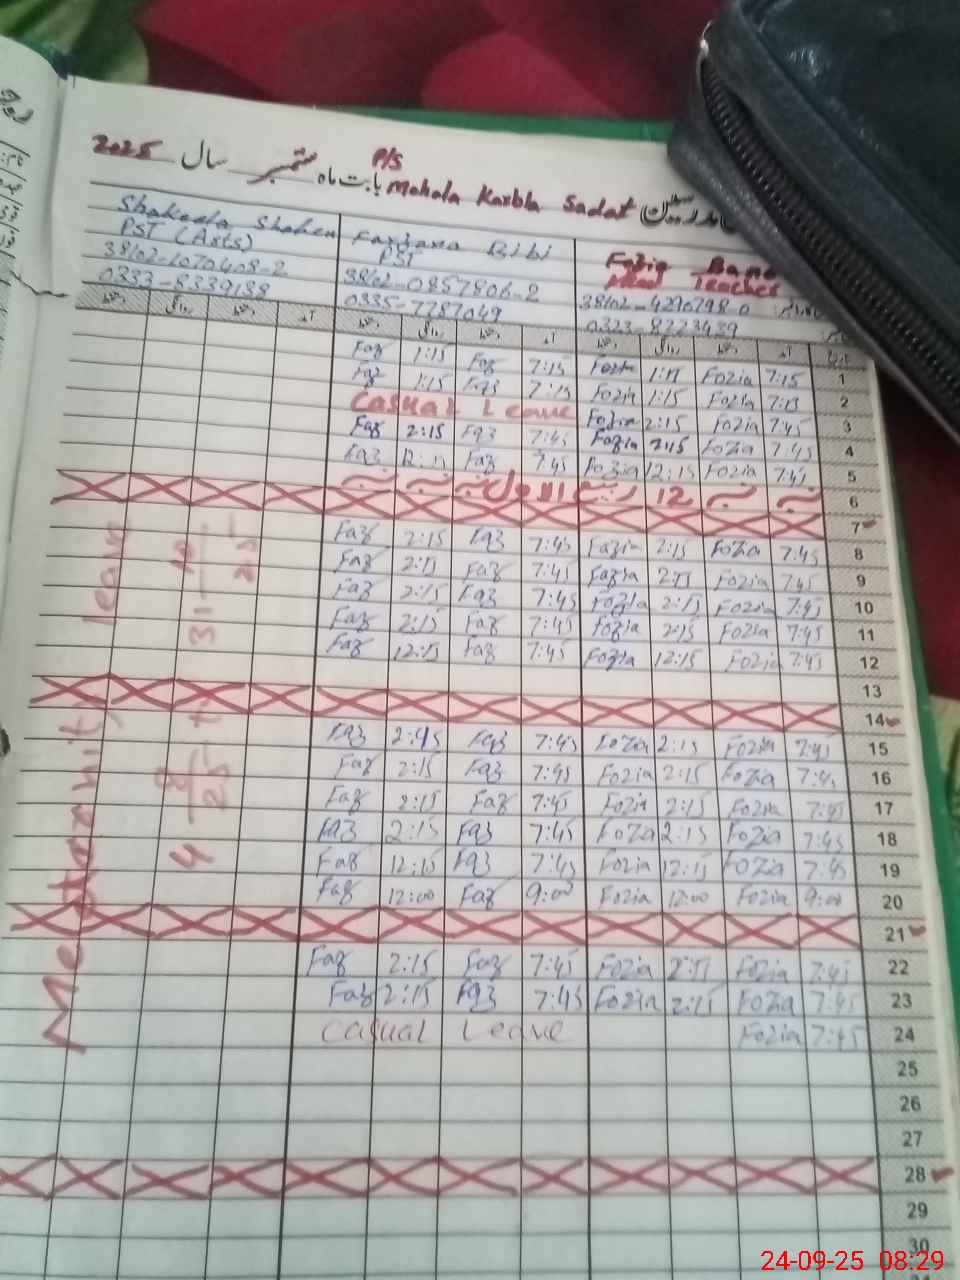 2025 سال ستمبر بابت ماہ P/S Mahala Karbla Sadat مدرسین
Shakeela Shaheen
PST (Arts)
0333-8339188
Farzana Bibi
PST
38402-0857806-2
0335-7787049
Fozia Bano
Head Teacher
38402-4290798-0
0323-8223439
Faz 1:15 Faz 7:15 Fozia 1:15 Fozia 7:15 1
Faz 1:15 Faz 7:15 Fozia 1:15 Fozia 7:15 2
Casual Leave Fozia 2:15 Fozia 7:45 3
Faz 2:15 Faz 7:45 Fozia 2:15 Fozia 7:45 4
Faz 12:15 Faz 7:45 Fozia 12:15 Fozia 7:45 5
12 ربیع الاول 6
7
Faz 2:15 Faz 7:45 Fozia 2:15 Fozia 7:45 8
Faz 2:15 Faz 7:45 Fozia 2:15 Fozia 7:45 9
Faz 2:15 Faz 7:45 Fozia 2:15 Fozia 7:45 10
Faz 2:15 Faz 7:45 Fozia 2:15 Fozia 7:45 11
Faz 12:15 Faz 7:45 Fozia 12:15 Fozia 7:45 12
13
14
Faz 2:45 Faz 7:45 Fozia 2:15 Fozia 7:45 15
Faz 2:15 Faz 7:45 Fozia 2:15 Fozia 7:45 16
Faz 2:15 Faz 7:45 Fozia 2:15 Fozia 7:45 17
Faz 2:15 Faz 7:45 Fozia 2:15 Fozia 7:45 18
Faz 12:15 Faz 7:45 Fozia 12:15 Fozia 7:45 19
Faz 12:00 Faz 9:00 Fozia 12:00 Fozia 9:00 20
21
Faz 2:15 Faz 7:45 Fozia 2:15 Fozia 7:45 22
Faz 2:15 Faz 7:45 Fozia 2:15 Fozia 7:45 23
Casual Leave Fozia 7:45 24
25
26
27
28
29
30
Meternity leave
24-09-25 08:29